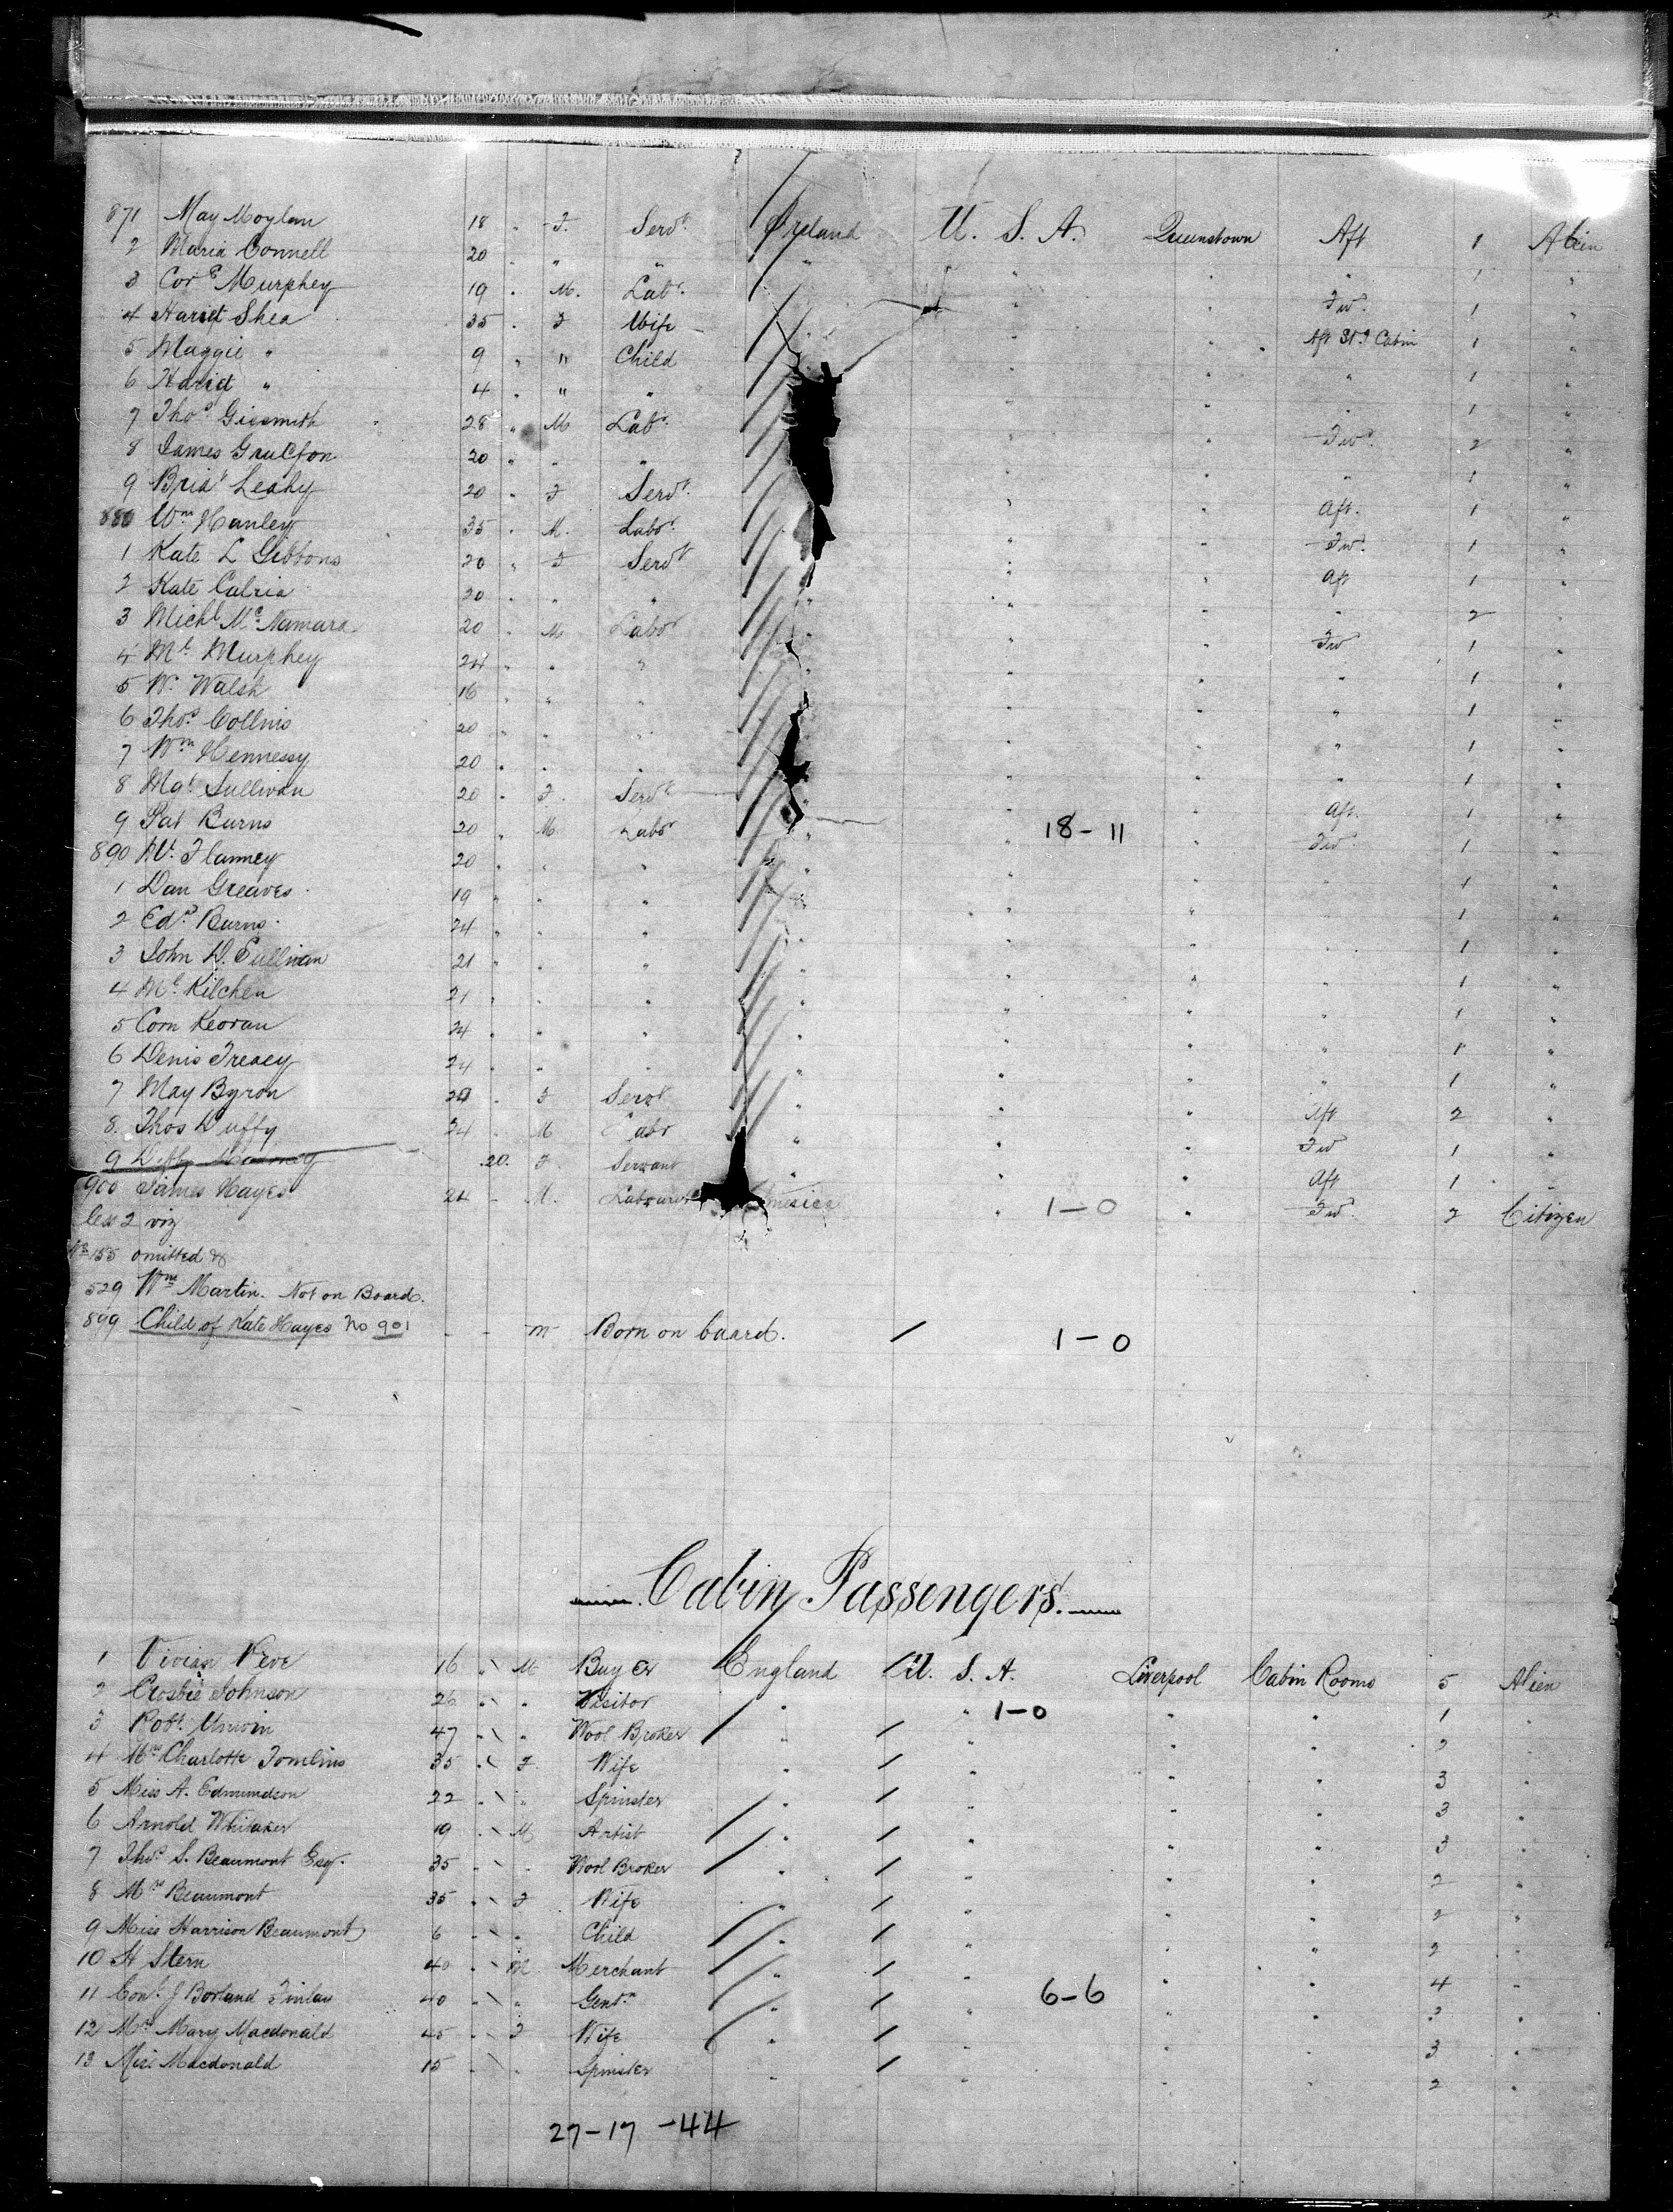 871 May Moylan 18 " F. Servt. Ireland U. S. A. Queenstown Aft 1 Alien
2 Maria Connell 20 " " " " " " " 1 "
3 Cors Murphey 19 " M. Labr. " " Fwd. 1 "
4 Hariet Shea 35 " F Wife " " Aft St'd Cabin 1 "
5 Maggie " 9 " " Child " " " 1 "
6 Hariet " 4 " " " " " " 1 "
7 Thos. 28 " M Labr. " " Fwd. 2 "
8 James 20 " " " " " " 1 "
9 Bridt Leahy 20 " F Servt. " " Aft. 1 "
880 Wm Hanley 35 " M. Labr. " " Fwd. 1 "
1 Kate L Gibbons 20 " F Servt " " Aft 1 "
2 Kate 20 " " " " " " " 2 "
3 Michl McNamara 20 " M Labr " " " Fwd 1 "
4 Mt. Murphey 24 " " " " " " " 1 "
5 W. Walsh 16 " " " " " " " 1 "
6 Thos. Collins 20 " " " " " " " 1 "
7 Wm Hennessy 20 " " " " " " " 1 "
8 Mgt Sullivan 20 " F. Servt " " " Aft. 1 "
9 Pat Burns 20 " M Labr " " 18-11 " Fwd. 1 "
890 Flanney 20 " " " " " " " 1 "
1 Dan Greaves 19 " " " " " " " 1 "
2 Edd Burns 24 " " " " " " " 1 "
3 John D. Sullivan 21 " " " " " " " 1 "
4 Kilchen 21 " " " " " " " 1 "
5 Corn Keoran 24 " " " " " " " 1 "
6 Denis Treacy 24 " " " " " " " 1 "
7 May Byron 20 " F Servt " " " Aft 2 "
8. Thos Duffy 24 " M Labr " " " Fwd 1 "
9 20. F. Servant " " " Aft 1 "
900 James Hayes 24 " M. Labourer America " 1-0 " Fwd. 2 Citizen
less 2 viz
No 155 omitted &
529 Wm Martin. Not on Board.
899 Child of Kate Hayes No 901 - - m Born on board. / 1-0
Cabin Passengers.
1 Vivian Neve 16 " M Buyer England U. S. A. Liverpool Cabin Rooms 5 Alien
2 Crosbie Johnson 26 " " Visitor " " 1-0 " " 1 "
3 Robt. Unwin 47 " " Wool Broker " " " " 2 "
4 Mrs Charlotte Tomlins 35 " F Wife " " " " 3 "
5 Miss A. Edmundson 22 " " Spinster " " " " 3 "
6 Arnold Whitaker 19 " M Artist " " " " 3 "
7 Thos. S. Beaumont Esq. 35 " " Wool Broker " " " " 2 "
8 Mrs Beaumont 35 " F Wife " " " " 2 "
9 Miss Harrison Beaumont 6 " " Child " " " " 2 "
10 H Stern 40 " M Merchant " " " " 4 "
11 J Borland Finlay 40 " " Gentn " " 6-6 " " 3 "
12 Mrs Mary Macdonald 45 " F Wife " " " " 3 "
13 Miss Macdonald 15 " " Spinster " " " " 2 "
27-17-44